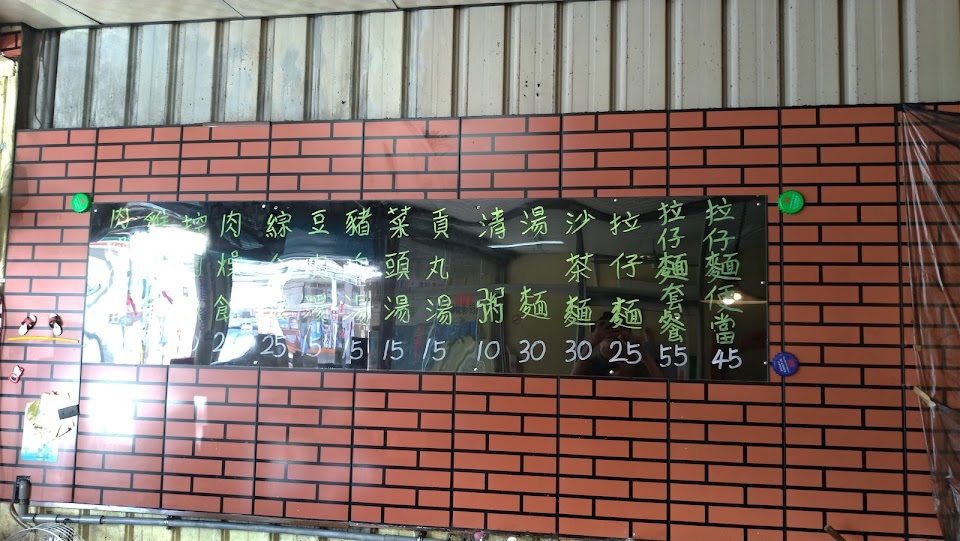 拉仔麵便當 45
拉仔麵套餐 55
拉仔麵 25
沙茶麵 30
湯麵 30
清粥 10
貢丸湯 15
菜頭湯 15
豬血湯 15
豆腐湯 15
綜合湯 25
肉燥飯